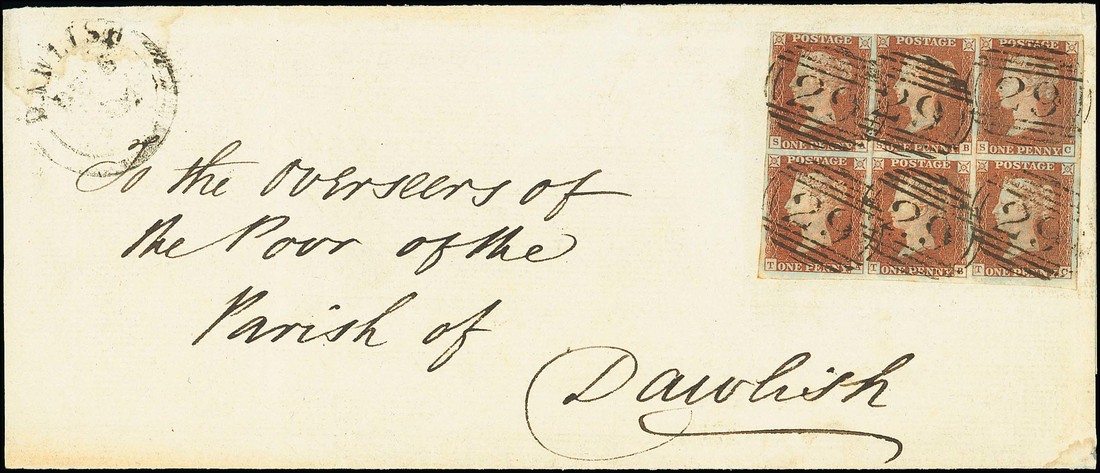 DAWLISH
POSTAGE POSTAGE POSTAGE
29 29 29
S ONE PENNY ONE PENNY B S ONE PENNY C
POSTAGE POSTAGE POSTAGE
29 29 29
T ONE PENNY T ONE PENNY B T ONE PENNY C
To the Overseers of
the Poor of the
Parish of
Dawlish